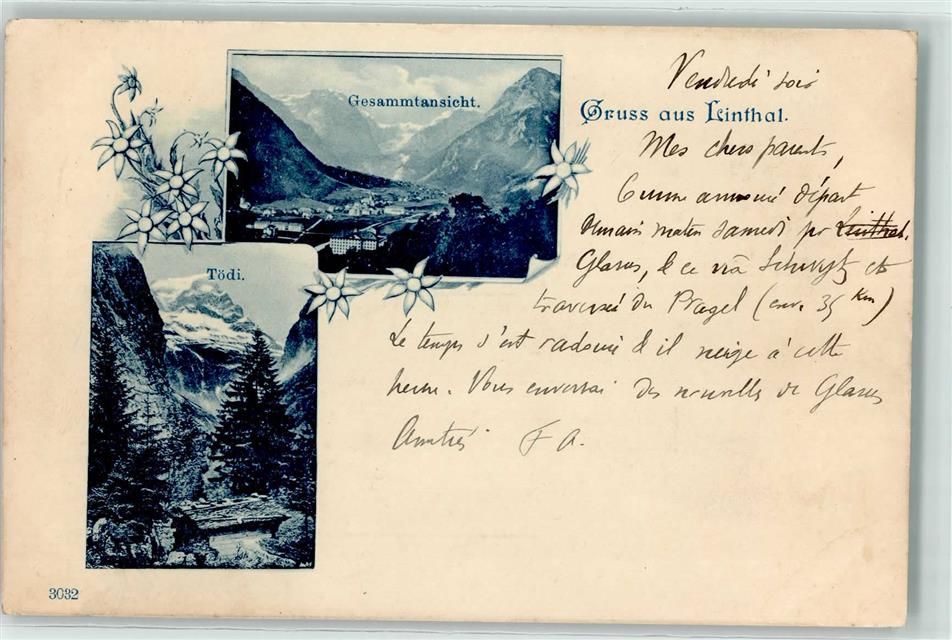 Gesammtansicht.
Gruss aus Linthal.
Tödi.
Vendredi soir
Mes chers parents,
Comme annoncé départ
demain matin samedi pr Linthal.
Glarus, et ce via Schwytz et
traversée du Pragel (env. 35 Km)
Le temps s'est radouci & il neige à cette
heure. Vous enverrai des nouvelles de Glarus
Amitiés F A.
3032